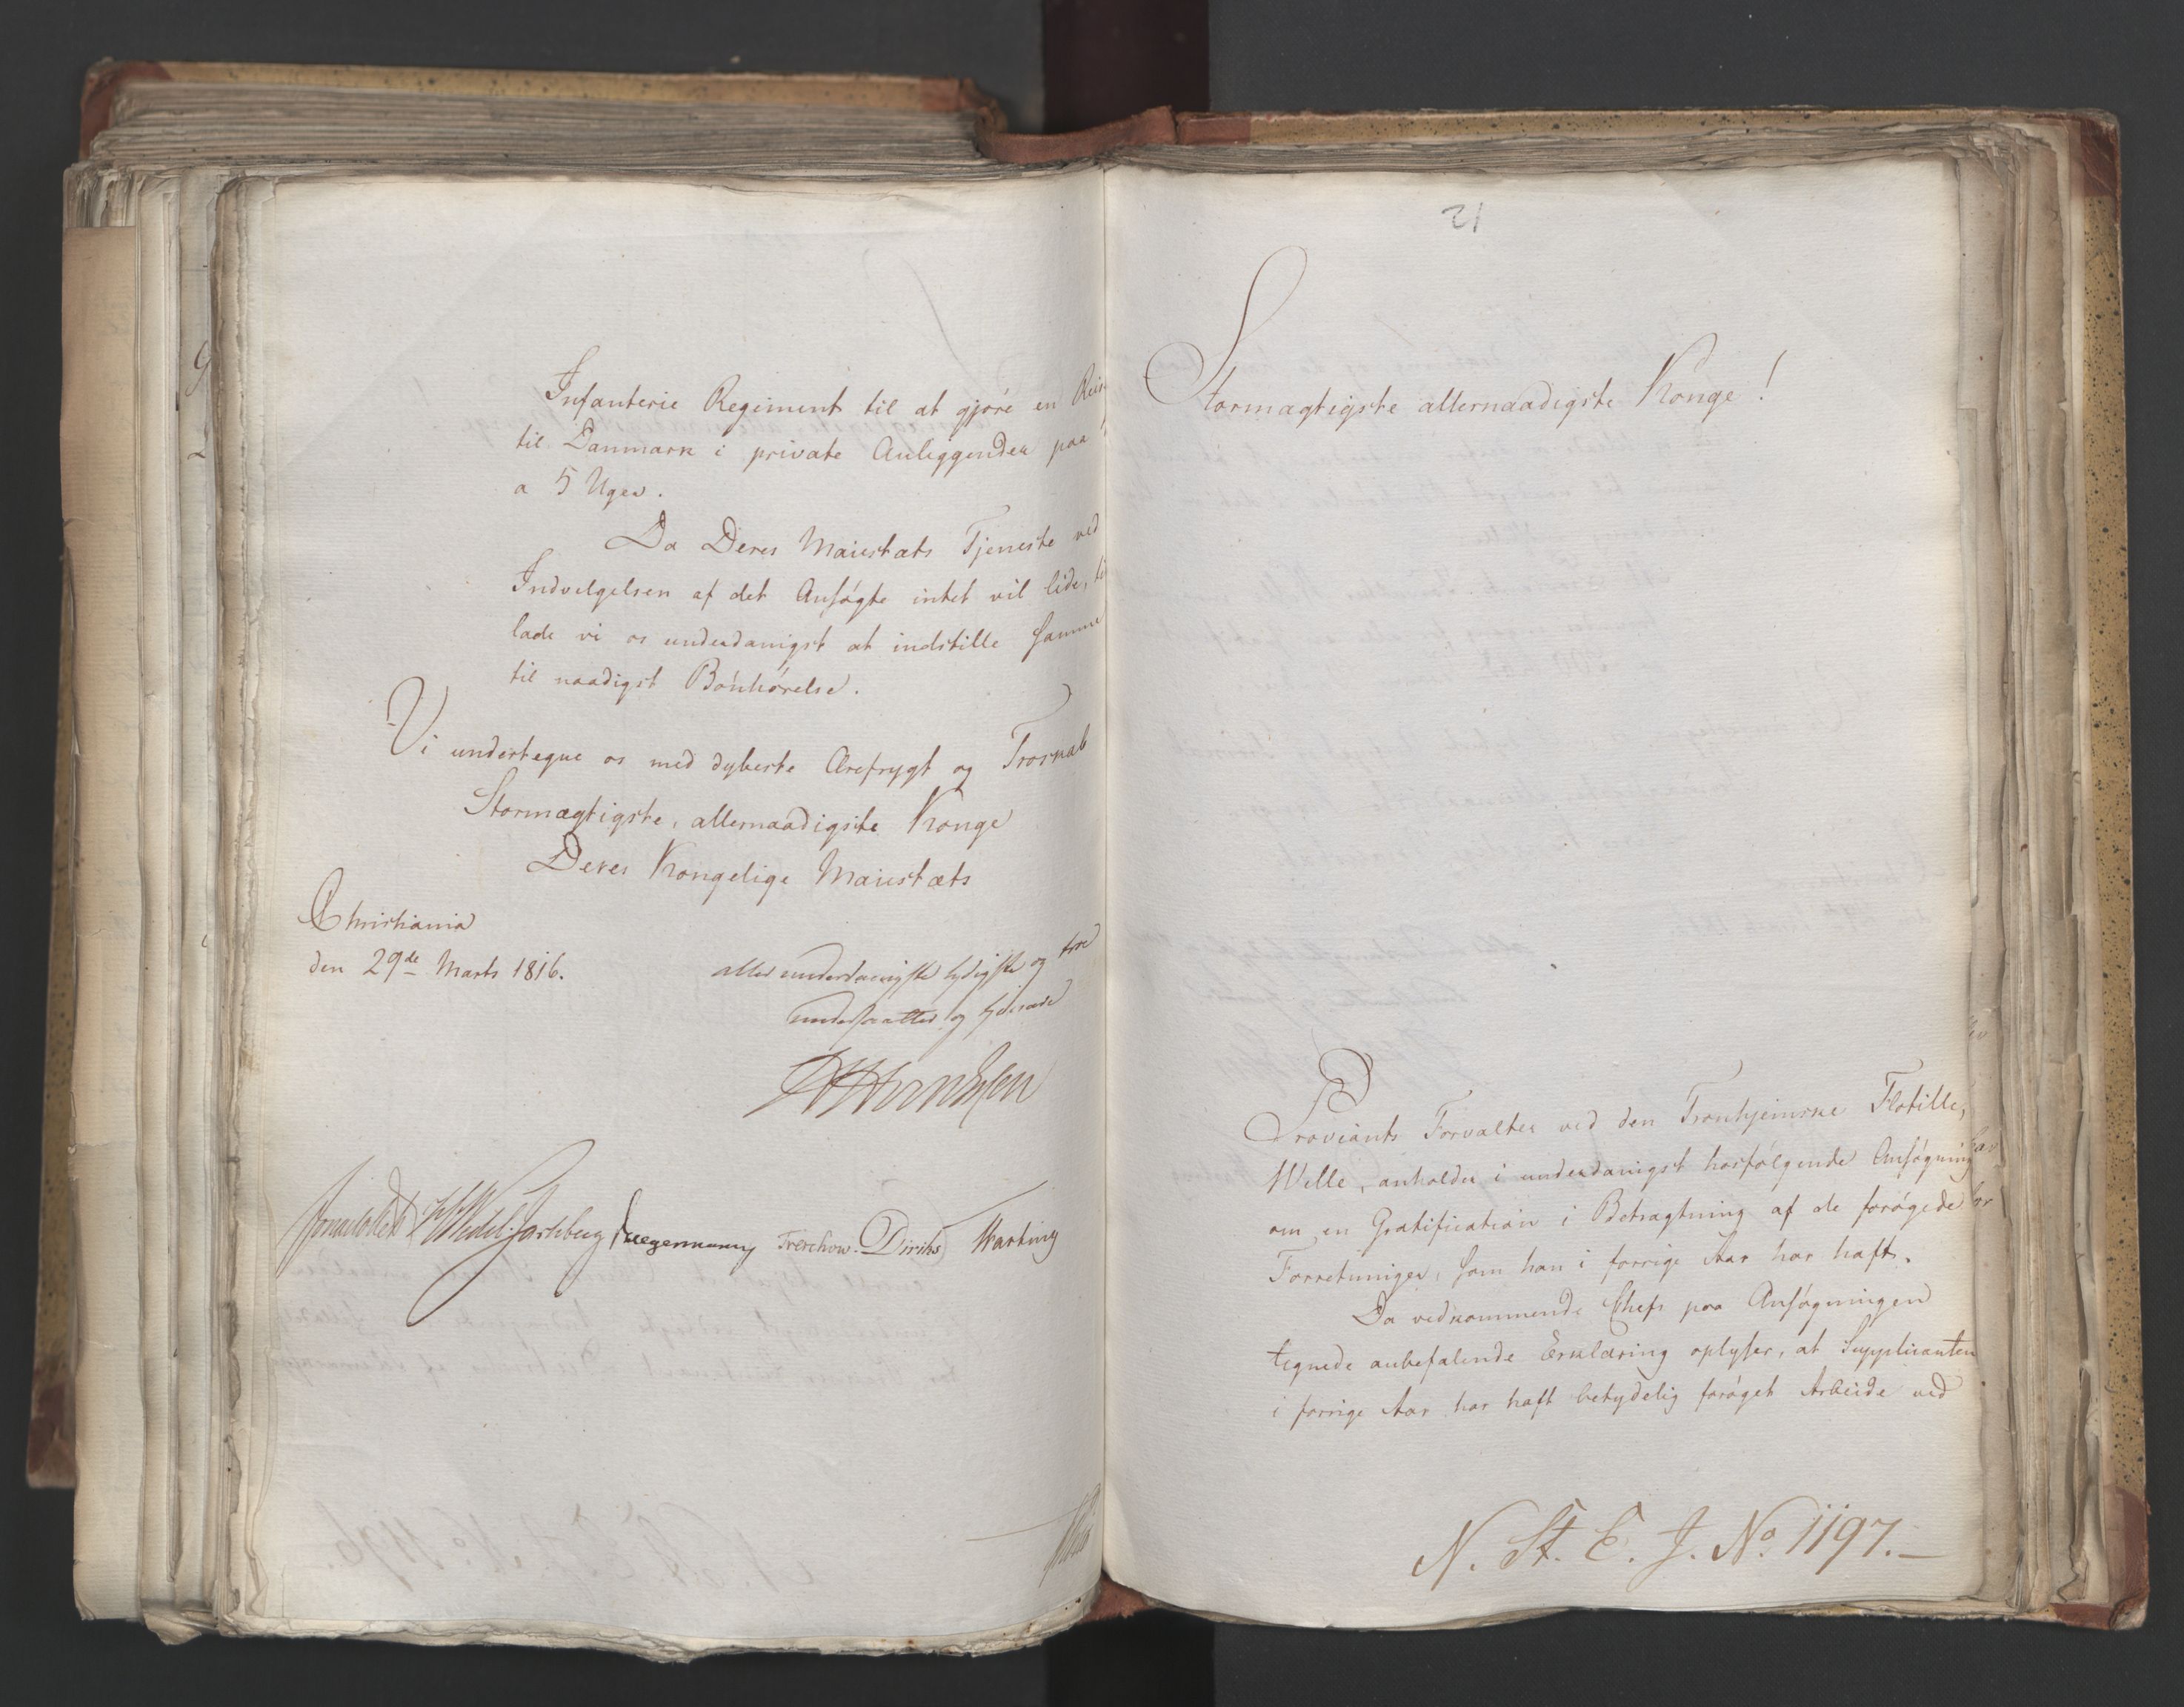 Infanterie Regiment til at gjöre en Reise
til Danmark i private Anliggender paa
a 5 Uger.
Da Deres Maiestæts Tjeneste ved
Indvilgelsen af det Ansögte intet vil lide,
lade vi os underdanigst at indstille samme
til naadigst Bönhörelse.
Vi undertegne os med dybeste Ærefrygt og Troskab
Stormægtigste, allernaadigste Konge
Deres Kongelige Maiestæts
Christiania
den 29de Marts 1816.
allerunderdanigste lydigste og troe
undersaatter og tjenere
Sommerhielm Wedel Jarlsberg Hegermann Treschow. Diriks
21
Stormægtigste allernaadigste Konge!
Proviants Forvalter ved den Tronhjemske Flotille,
Welle, anholder i underdanigst hosfølgende Ansögning
om en Gratification i Betragtning af de forögede
Forretninger, som han i forrige Aar har haft.
Da vedkommende Chefs paa Ansögningen
tegnede anbefalende Erklæring oplyser, at Supplicanten
i forrige Aar har haft betydelig foröget Arbeide ved
N. St. E. J. No. 1197.